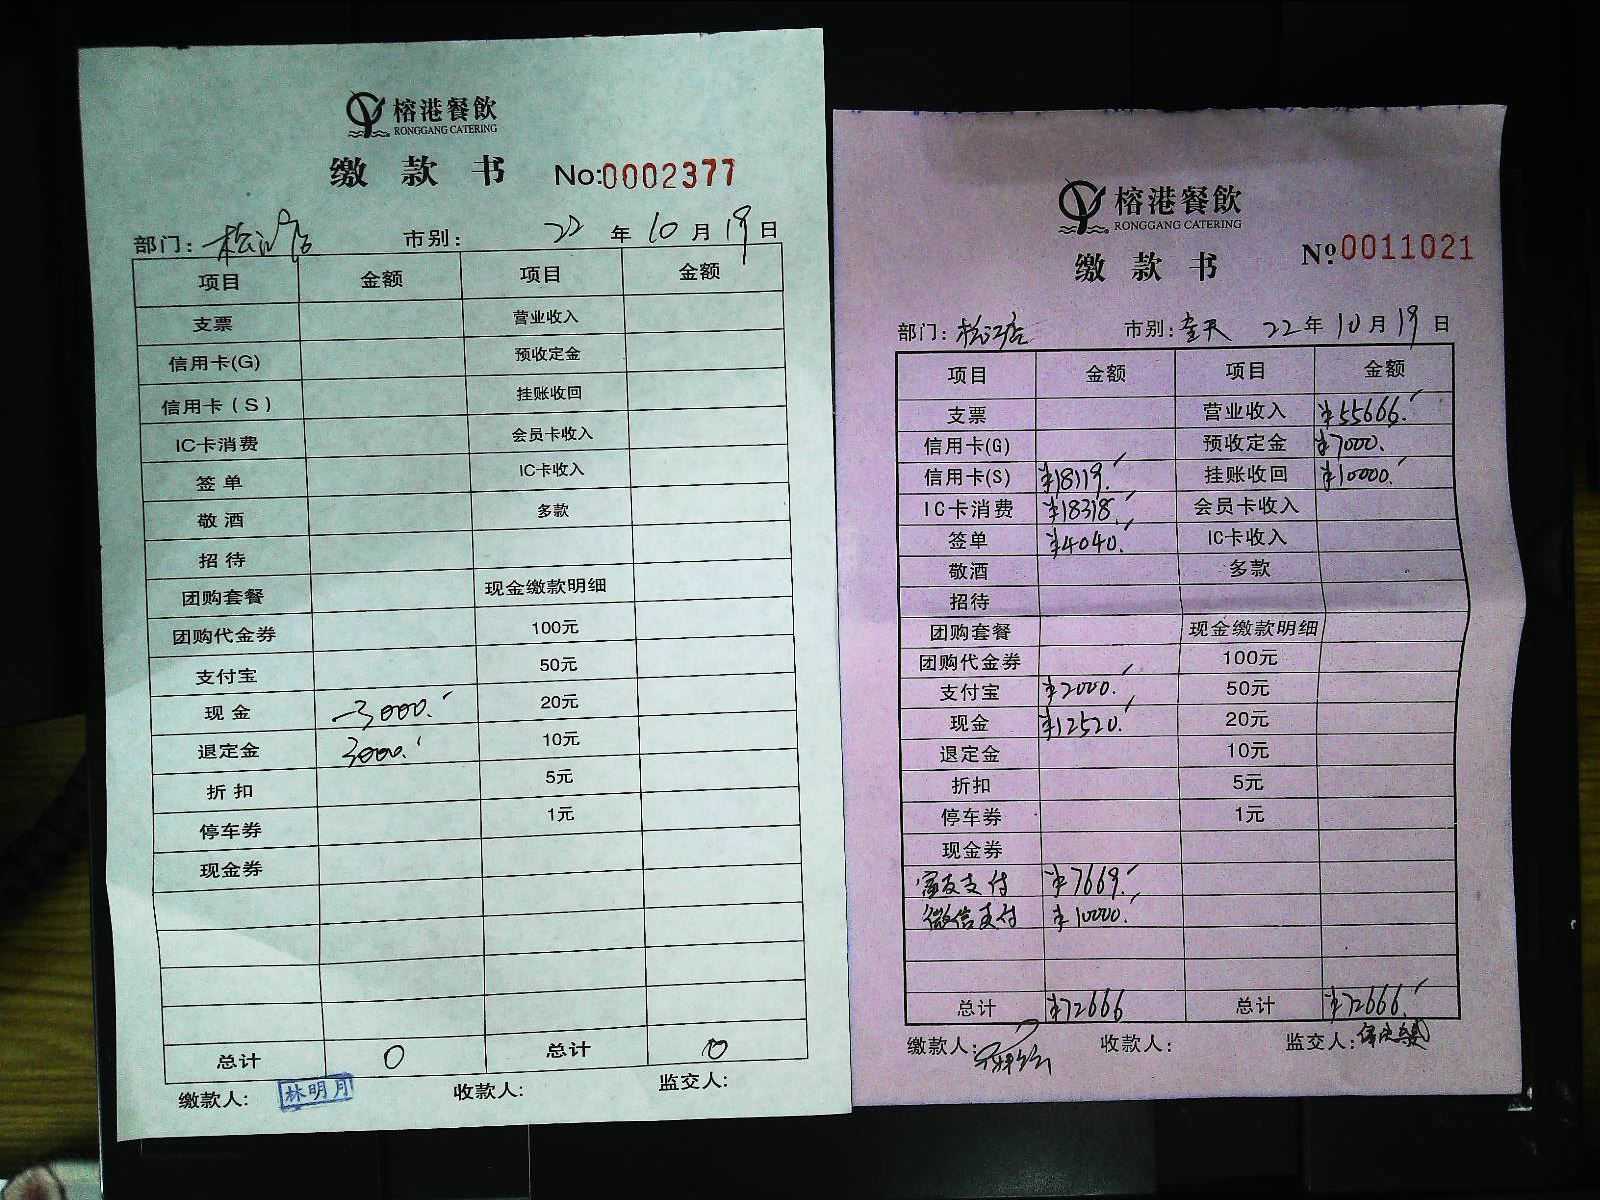 榕港餐飲
RONGGANG CATERING
缴款书 No:0002377
部门: 松江店 市别: 22年10月19日
项目 金额 项目 金额
支票 营业收入
信用卡(G) 预收定金
信用卡(S) 挂账收回
IC卡消费 会员卡收入
签单 IC卡收入
敬酒 多款
招待
团购套餐 现金缴款明细
团购代金券 100元
支付宝 50元
现金 -3000. 20元
退定金 3000. 10元
折扣 5元
停车券 1元
现金券
总计 0 总计 0
缴款人: 林明月 收款人: 监交人:
榕港餐飲
RONGGANG CATERING
缴款书 Nº0011021
部门: 松江店 市别: 全天 22年10月19日
项目 金额 项目 金额
支票 营业收入 ¥55666.
信用卡(G) 预收定金 ¥7000.
信用卡(S) ¥18119. 挂账收回 ¥10000.
IC卡消费 ¥18318. 会员卡收入
签单 ¥4040. IC卡收入
敬酒 多款
招待
团购套餐 现金缴款明细
团购代金券 100元
支付宝 ¥2000. 50元
现金 ¥12520. 20元
退定金 10元
折扣 5元
停车券 1元
现金券
支付 ¥7669.
微信支付 ¥10000.
总计 ¥72666 总计 ¥72666.
缴款人: 收款人: 监交人: